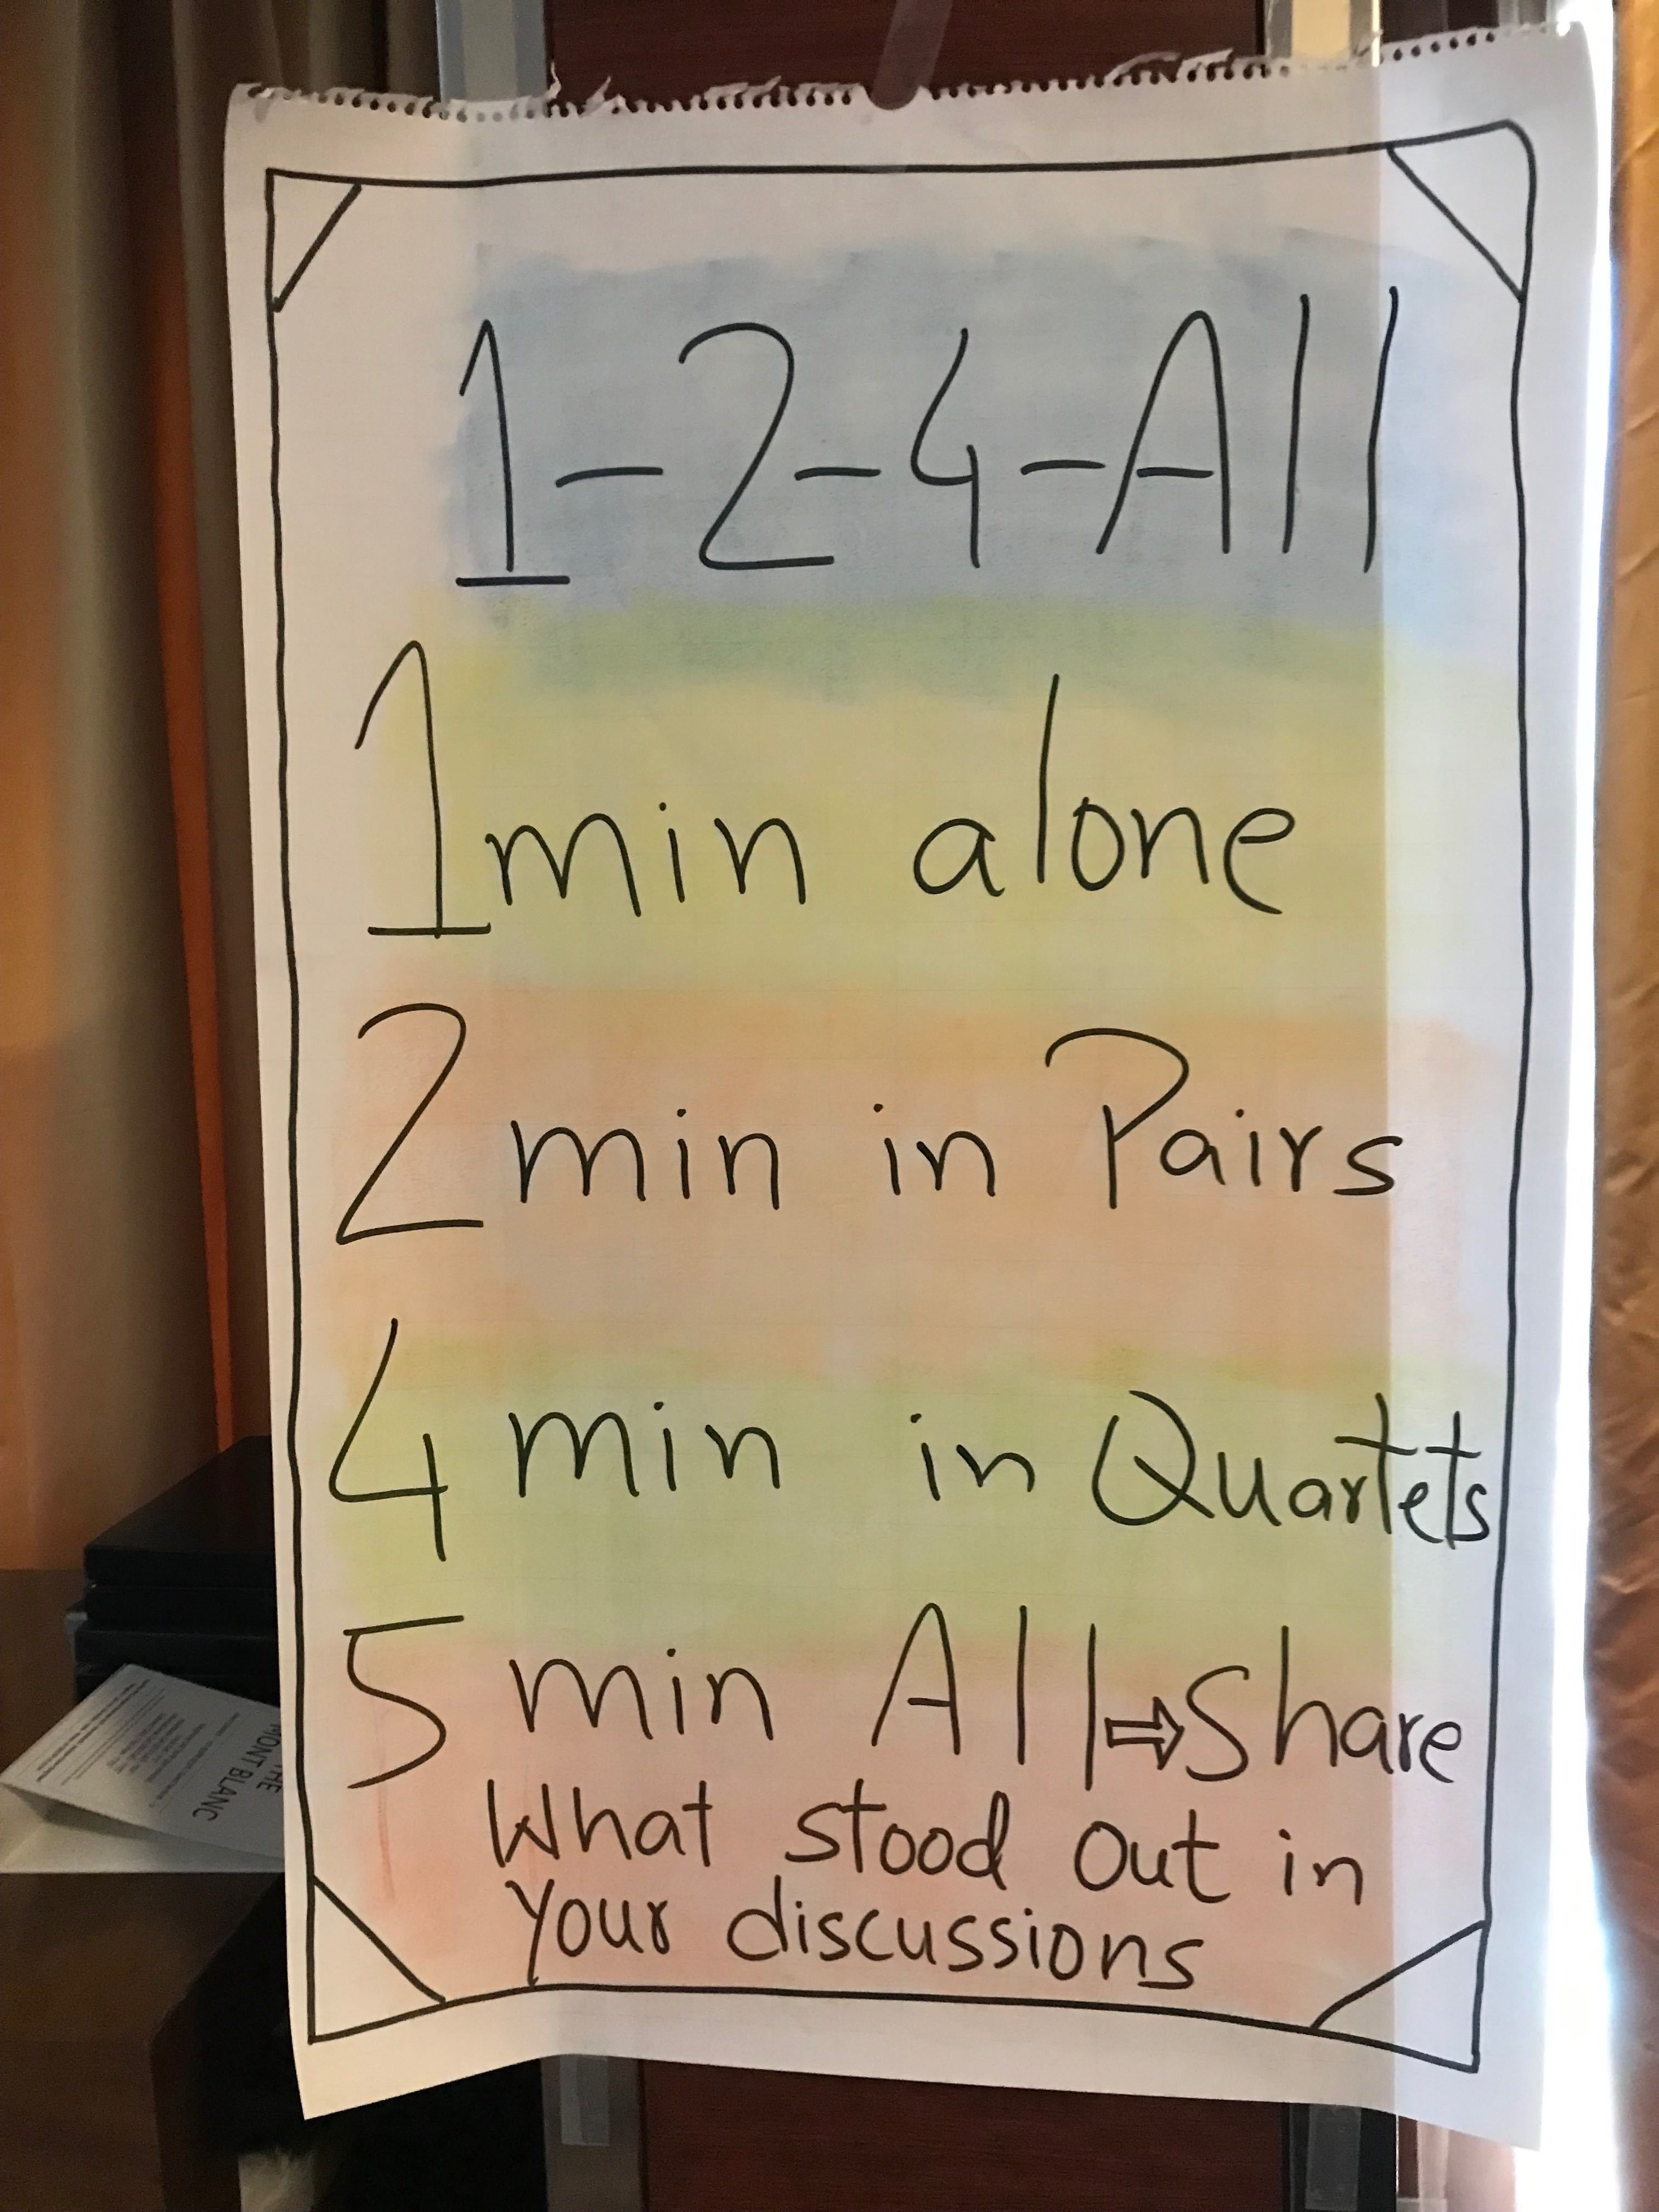 1-2-4-All
1 min alone
2 min in Pairs
4 min in Quartets
5 min All ⇨ Share
What stood out in
your discussions
THE
MONT BLANC